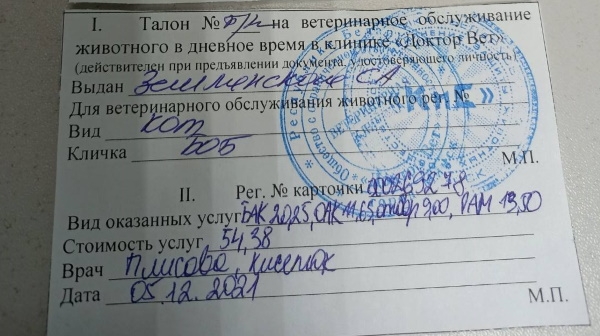 I. Талон № б/н на ветеринарное обслуживание
животного в дневное время в клинике «Доктор Вет»
(действителен при предъявлении документа, удостоверяющего личность)
Выдан
Для ветеринарного обслуживания животного рег. №
Вид кот
Кличка Боб
М.П.
II. Рег. № карточки 00269278
Вид оказанных услуг БАК 2025, ОАК 11.65, отбор 9,00, РАМ 13,50
Стоимость услуг 54,38
Врач Плисова, Киселюк
Дата 05.12.2021
М.П.